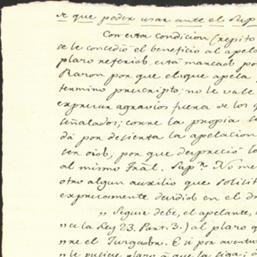 r que poder usar ante el Sup
Con esta condicion (repito
se le concedió el beneficio al apela
plazo referido, está marcado po
Razon por que el que apela
termino prescripto: no le vale
expresar agravios fuera de los q
señalados; corre la propia
dá por desierta la apelacion
ten oido, por que despreció lo
al mismo Tral. Supº No me
otro algun auxilio que solicit
expresamente decidido en el d
„ Seguir debe, el apelante,
„ u la Ley 23. Part. 3.) al plazo q
„ re el Juzgador. E si por aventur
le pusiere plazo á que la siga; ó